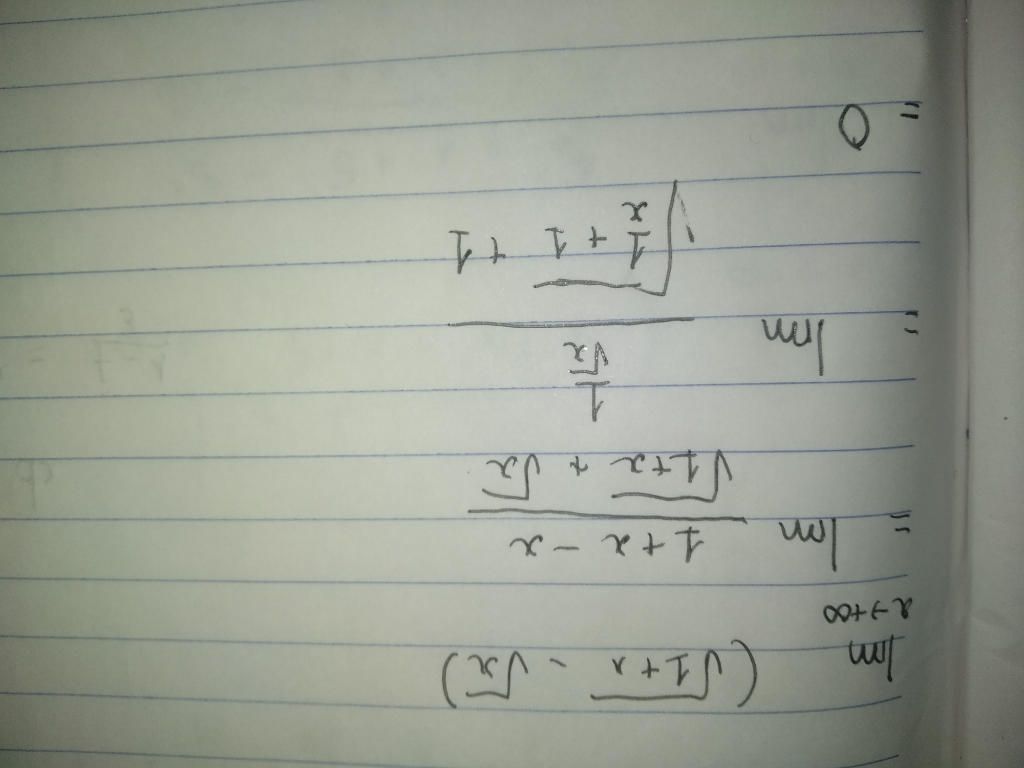 lim (√1+x - √x)
x→+∞
= lim 1+x-x
√1+x + √x
= lim 1
√x
√1/x + 1 + 1
= 0